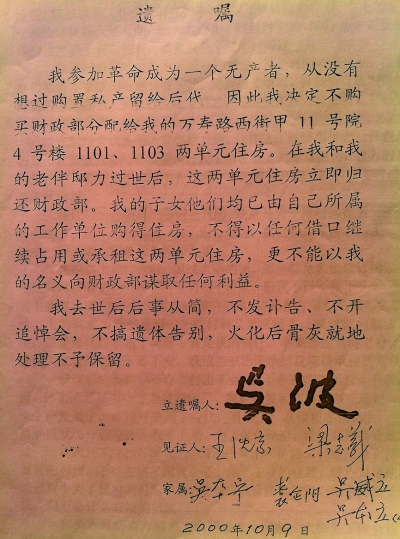 遗 嘱
我参加革命成为一个无产者，从没有
想过购置私产留给后代，因此我决定不购
买财政部分配给我的万寿路西街甲 11 号院
4 号楼 1101、1103 两单元住房。在我和我
的老伴邸力过世后，这两单元住房立即归
还财政部。我的子女他们均已由自己所属
的工作单位购得住房，不得以任何借口继
续占用或承租这两单元住房，更不能以我
的名义向财政部谋取任何利益。
我去世后后事从简，不发讣告、不开
追悼会，不搞遗体告别，火化后骨灰就地
处理不予保留。
立遗嘱人：吴波
见证人：王 梁志義
家属：吴本宁 吴威立
吴本立
2000年10月9日